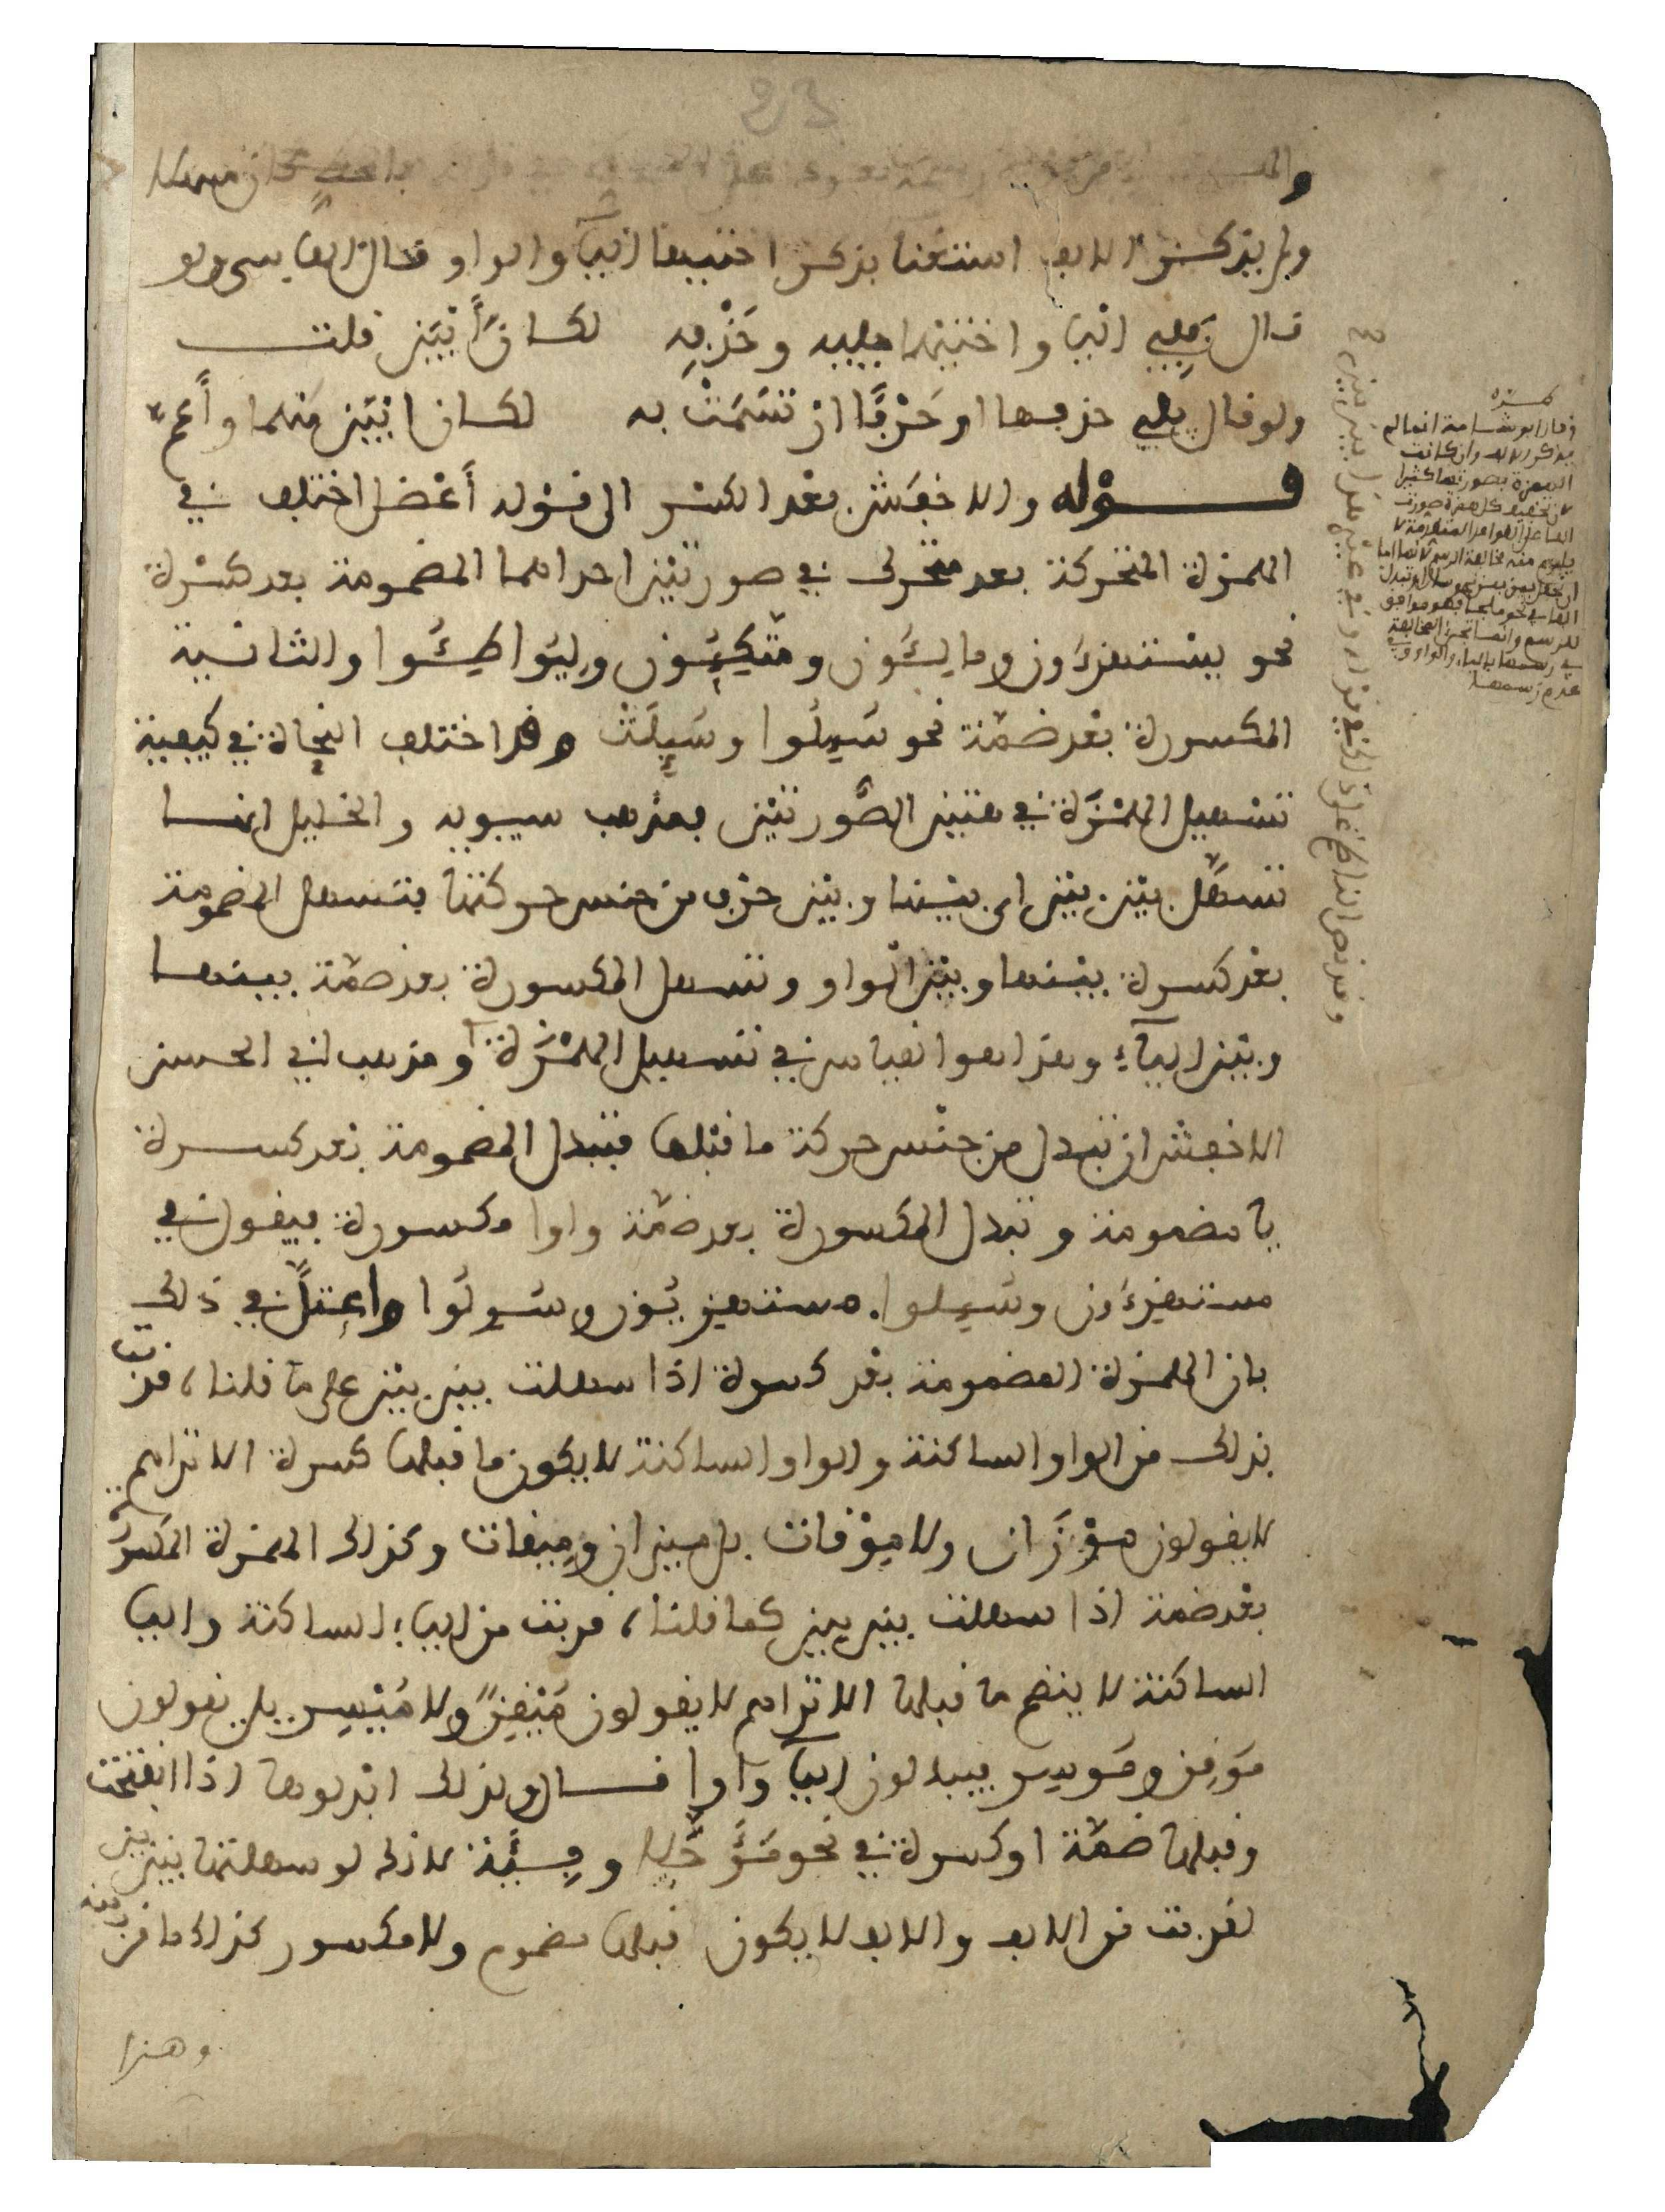 ولم يذكر الالف استغنا بذكر اختيها اليآ والواو فقال الفاسي ولو
قال بَفِي اليا واختيها يليه وحَذْفِهِ لكانَ أَبْيَن قلت
ولو قال يلي حذفها او حَرْفًا ان تَسَمَّتْ به لكان ابْيَن منهما وأعم
قــوْله والاخفَش بعد الكسْر الى قوْله أعْضل اختلف في
الهمزة المتحركة بعد متحرك في صورتيْن احداهما المضمومة بعد كسْرة
نحو يسْتهزءُون وما لِئُون ومتّكِئُون ولِيُواطِئُوا والثانية
المكسورة بعْد ضمّة نحو سُئِلُوا وسُئِلَتْ وقد اختلف النحاة في كيفية
تسْهيل الهمْزَة في هتين الصُّورتيْن فمذهب سيبويه والخليل انها
تسهّل بيْن بيْن اى بيْنها وبيْن حرْف من جنس حركتها فتسهل المضمومة
بعْد كسرة بيْنها وبيْن الْواو وتسهل المكسورة بعد ضمّة بينها
وبيْن اليآءِ وهذا هوا لقياس في تسهيل الهمْزَة ومذهب ابي الحسن
الاخفش ان تبدل من جنْس حركة ما قبْلها فتبدل المضمومة بعد كسرة
يا مضمومة وتبدل المكسورة بعد ضمّة واوا مكسورة فيقول في
مستهزءُون وسُئِلوا. مستهزيُون وسُوِلُوا واعتلَّ في ذلك
بان الهمزة المضمومة بعْد كسرة اذا سهلت بين بيْن على ما قلنا، قربت
بذلك من الواو الساكنة والواو الساكنة لا يكون ما قبلها كسرة الا تراهم
لا يقولون مِوْزَان ولا مِوْقات بل ميزان ومِيقات وكذلك الهمزة المكسورة
بعْد ضمة اذا سهلت بين بين كما قلنا، قربت من اليا الساكنة واليا
الساكنة لا ينضم ما قبلها الا تراهم لا يقولون مُيْقِنٌ ولا مُيْسِر بل يقولون
مُوقِن ومُوسِر فيبدلون اليآ واوا قــال ولذلك ابدلوها اذا انفتحت
وقبلها ضمّة او كسرة في نحو مُؤَجَّلا ومِئَة لانك لو سهلتها بيْن بين
لقربت من الالف والالف لا يكون قبلها مضموم ولا مكسور كذلك ما قرب منه
وهذا
وقال ابو شامة انما لم
يذكر الالف وان كانت
الهمزة بصورتها كثيرا
لان تخفيف كل همزة صورت
الفا على القواعد المتقدمة لا
يلزم منه مخالفة الرسم لانها اما
ان تجعل بين بين نحو سال او تبدل
الفا في نحو ملجا فهو موافق
للرسم وانما تجئ المخالفة
في رسمها باليا والواو وفي
عدم رسمها